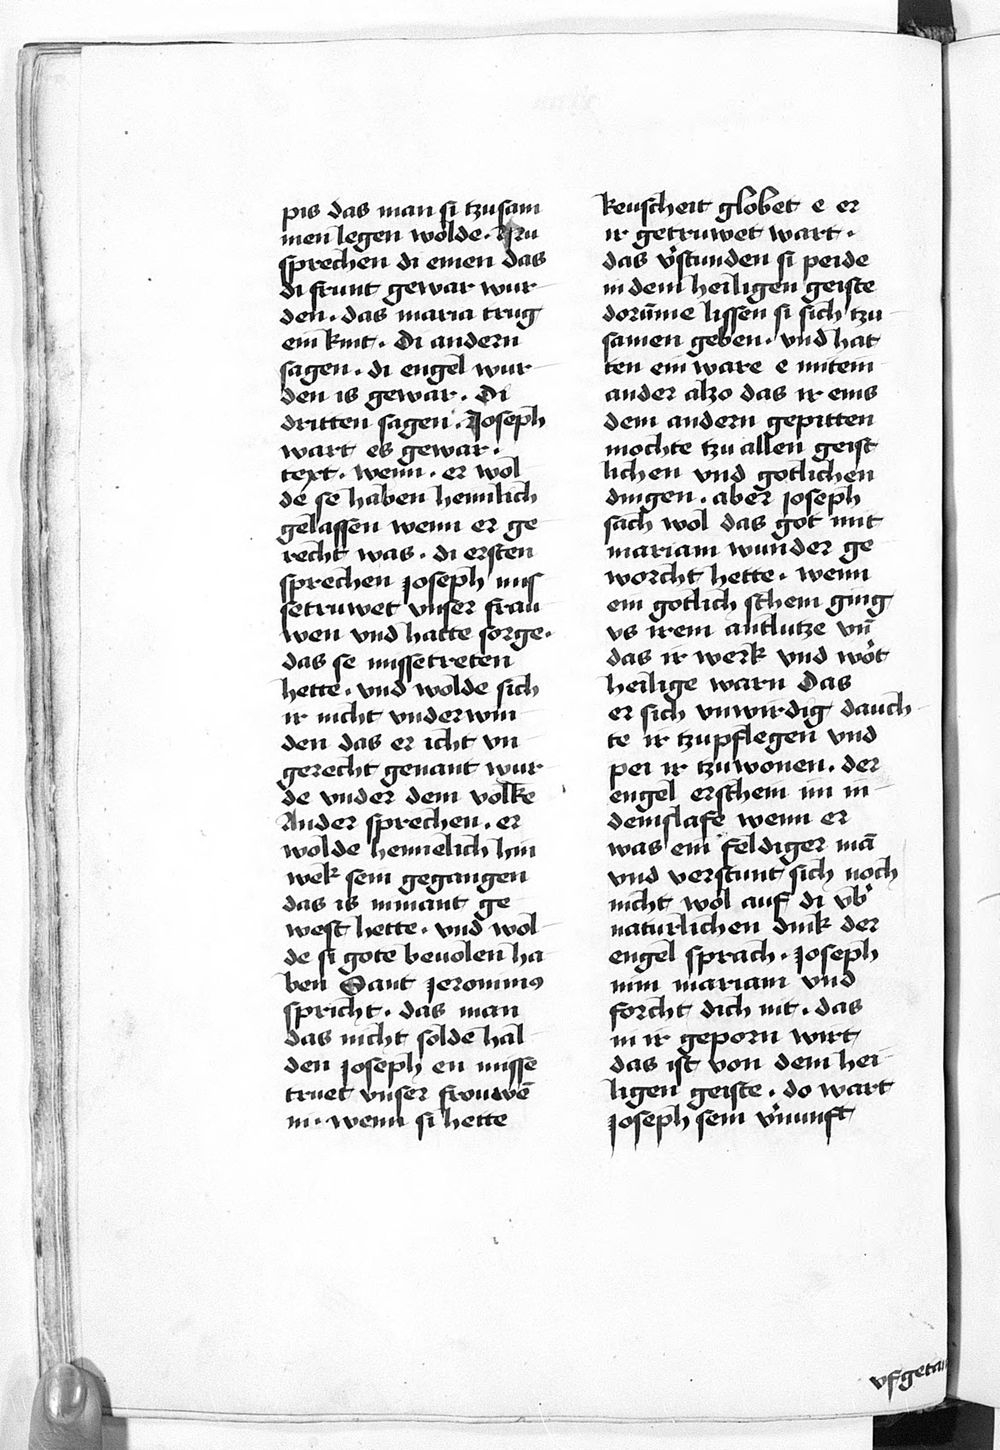 pis das man si tzusam
men legen wolde. Nu
sprechen di einen das
di frunt gewar wur
den. das maria trug
ein kint. Di andern
sagen. di engel wur
den is gewar. Di
dritten sagen. Joseph
wart es gewar.
text. wenn. er wol
de se haben heimlich
gelassen wenn er ge
recht was. di ersten
sprechen joseph mis
setruwet unser frau
wen vnd hatte sorge.
das se missetreten
hette. vnd wolde sich
ir nicht vnderwin
den das er icht vn
gerecht genant wur
de vnder dem volke
Ander sprechen. er
wolde heimelich hin
wek sein gegangen
das is nimant ge
west hette. vnd wol
de si gote beuolen ha
ben Sant jeronimus
spricht. das man
das nicht solde hal
den joseph en misse
truet vnser frouwē
in. wenn si hette
keuscheit globet e er
ir getruwet wart.
das v'stunden si peide
in dem heiligen geiste
dorūme lissen si sich tzu
samen geben. vnd hat
ten ein ware e mitein
ander also das ir eins
dem andern gepitten
mochte tzu allen geist
lichen vnd gotlichen
dingen. aber joseph
sach wol das got mit
mariam wunder ge
worcht hette. wenn
ein gotlich schein ging
vs irem antlutze vn̄
das ir werk vnd wo't
heilige warn Das
er sich vnwirdig dauch
te ir tzupflegen vnd
pei ir tzuwonen. der
engel erschein im in
demslafe wenn er
was ein feldiger mā
vnd verstunt sich noch
nicht wol auf di vb'
naturlichen dink der
engel sprach. joseph
nim mariam vnd
forcht dich nit. das
in ir geporn wirt
das ist von dem hei
ligen geiste. do wart
joseph sein v'nunft
vfgetan